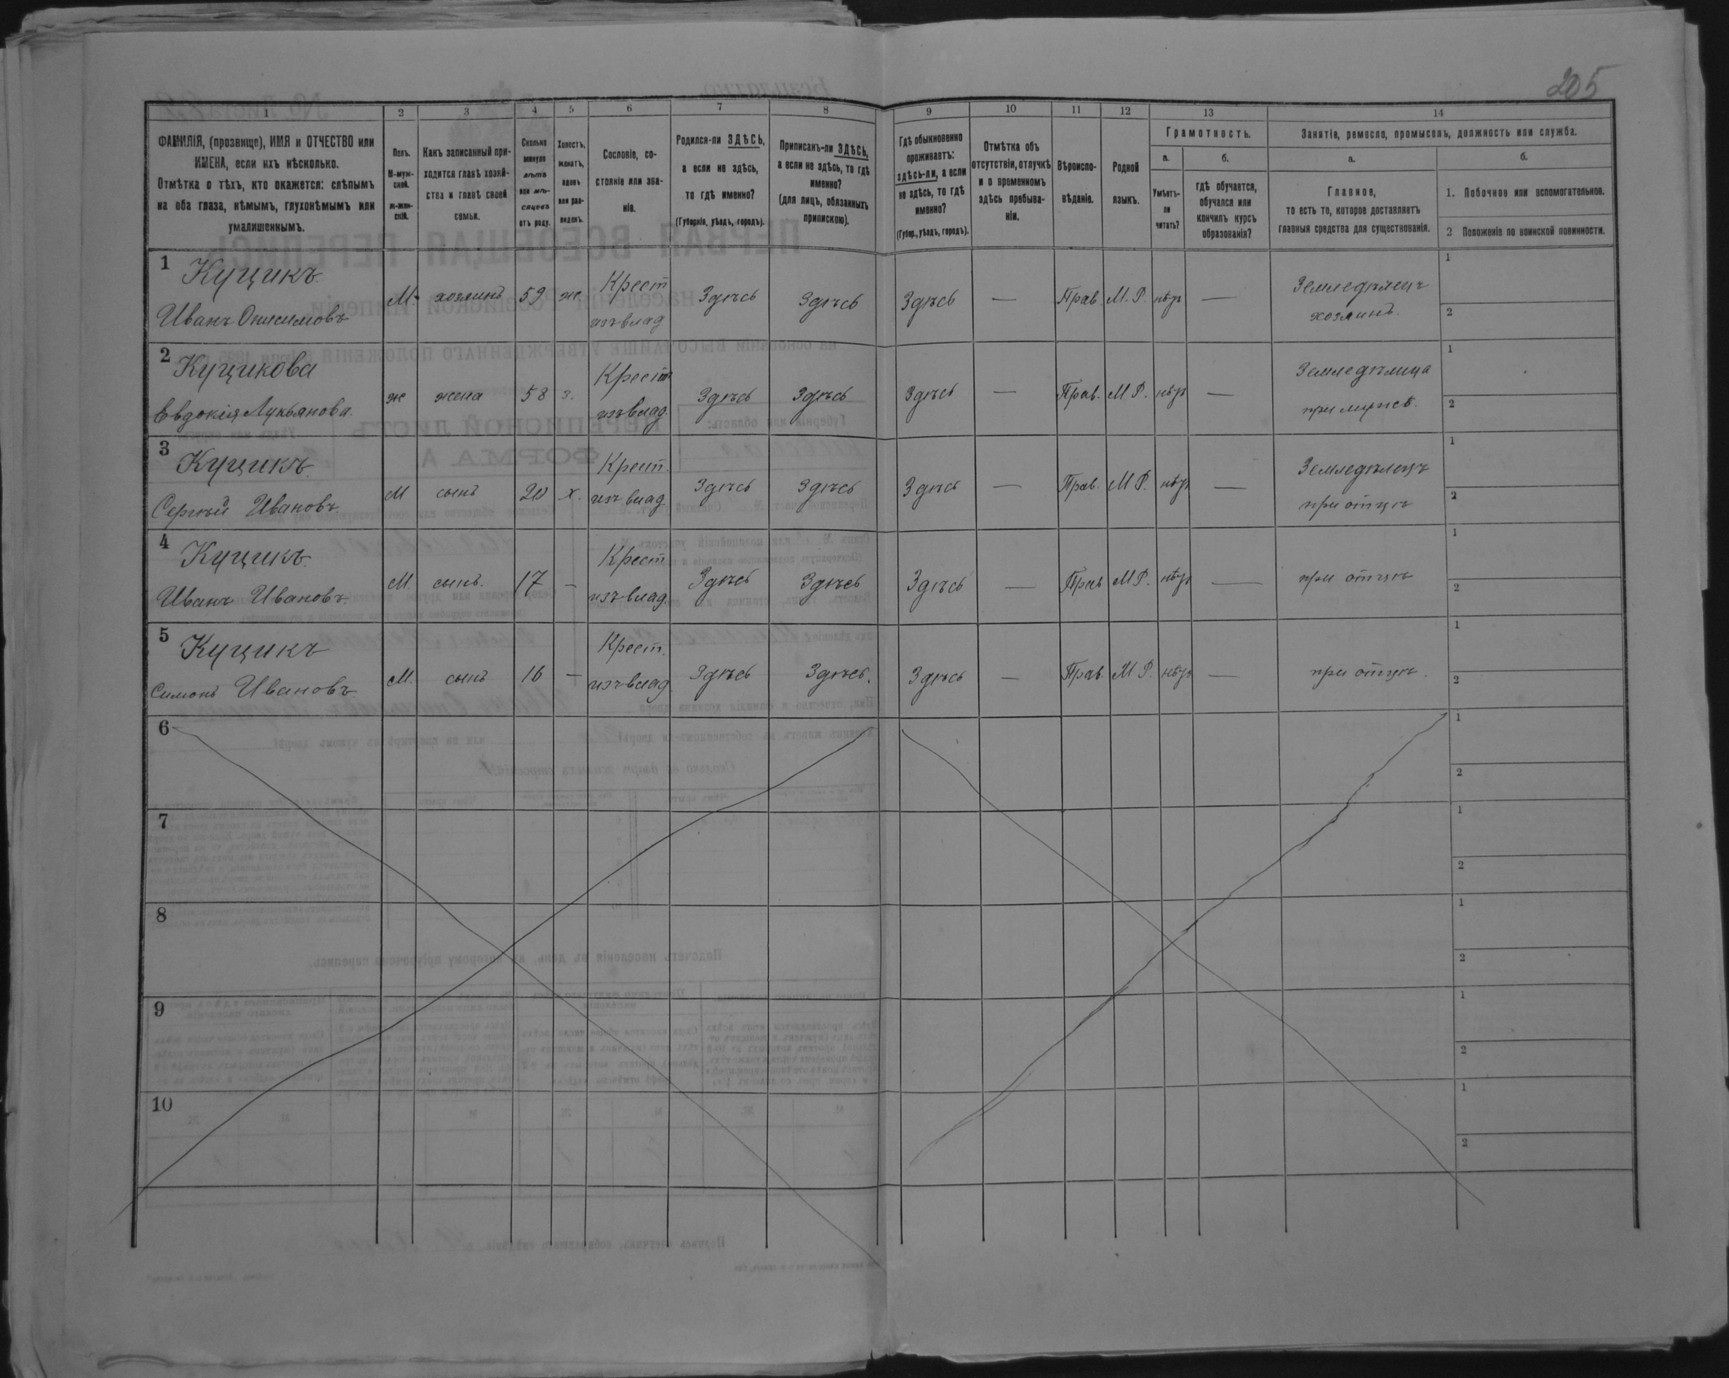 205
1 2 3 4 5 6 7 8 9 10 11 12 13 14
ФАМИЛІЯ, (прозвище), ИМЯ и ОТЧЕСТВО или
ИМЕНА, если ихъ нѣсколько.
Отмѣтка о тѣхъ, кто окажется: слѣпымъ
на оба глаза, нѣмымъ, глухонѣмымъ или
умалишеннымъ.
Полъ.
М-муж-
ской.
ж-жен-
скій.
Какъ записанный при-
ходится главѣ хозяй-
ства и главѣ своей
семьи.
Сколько
минуло
лѣтъ
или мѣ-
сяцевъ
отъ роду.
Холостъ,
женатъ,
вдовъ
или раз-
веденъ.
Сословіе, со-
стояніе или зва-
ніе.
Родился-ли ЗДѢСЬ,
а если не здѣсь,
то гдѣ именно?
(Губернія, уѣздъ, городъ).
Приписанъ-ли ЗДѢСЬ,
а если не здѣсь, то гдѣ
именно?
(для лицъ, обязанныхъ
припискою).
Гдѣ обыкновенно
проживаетъ:
здѣсь-ли, а если
не здѣсь, то гдѣ
именно?
(Губер., уѣздъ, городъ).
Отмѣтка объ
отсутствіи, отлучкѣ
и о временномъ
здѣсь пребыва-
ніи.
Вѣроиспо-
вѣданіе.
Родной
языкъ.
Грамотность.
а. б.
Умѣетъ-
ли
читать?
гдѣ обучается,
обучался или
кончилъ курсъ
образованія?
Занятіе, ремесло, промыселъ, должность или служба.
а. б.
Главное,
то есть то, которое доставляетъ
главныя средства для существованія.
1. Побочное или вспомогательное.
2 Положеніе по воинской повинности.
1 Куцикъ Крест Земледѣлецъ 1
Иванъ Онисимовъ М. хозяинъ 59 же изъ влад Здѣсь Здѣсь Здѣсь — Прав. М.Р. нѣтъ — хозяинъ. 2
2 Куцикова Крест Земледѣлица 1
Евдокія Лукьянова же жена 58 з. изъ влад Здѣсь Здѣсь Здѣсь — Прав. М.Р. нѣтъ — при мужѣ. 2
3 Куцикъ Крест. Земледѣлецъ 1
Сергѣй Ивановъ М сынъ 20 х. изъ влад Здѣсь Здѣсь Здѣсь — Прав. М.Р. нѣтъ — при отцѣ 2
4 Куцикъ Крест. 1
Иванъ Ивановъ М. сынъ. 17 — изъ влад Здѣсь Здѣсь Здѣсь — Прав М.Р. нѣтъ — при отцѣ 2
5 Куцикъ Крест. 1
Симонъ Ивановъ М. сынъ 16 — изъ влад Здѣсь Здѣсь. Здѣсь — Прав. М.Р. нѣтъ — при отцѣ. 2
6 1
2
7 1
2
8 1
2
9 1
2
10 1
2